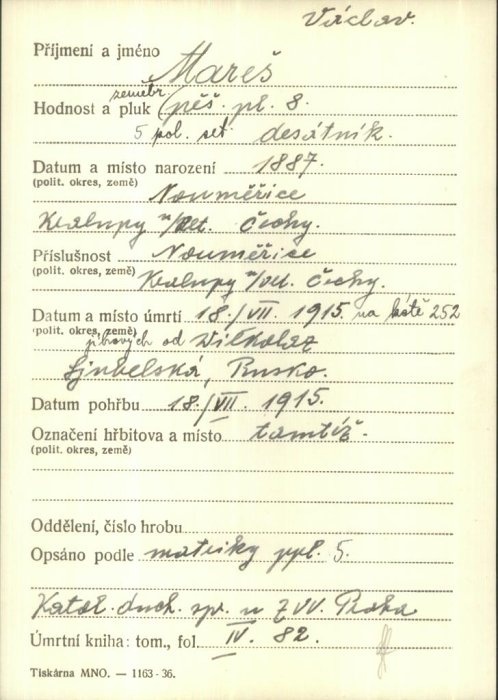 Václav.
Příjmení a jméno Mareš
zeměbr.
Hodnost a pluk (pěš. pl. 8.
5 pol. set. desátník.
Datum a místo narození 1887.
(polit. okres, země)
Nouměřice
Kralupy n/Vlt. Čechy.
Příslušnost Nouměřice
(polit. okres, země)
Kralupy n/Vlt. Čechy.
Datum a místo úmrtí 18./VII. 1915. na kótě 252
(polit. okres, země) od Wilkolaz
Ljubelská, Rusko.
Datum pohřbu 18./VII. 1915.
Označení hřbitova a místo tamtéž.
(polit. okres, země)
Oddělení, číslo hrobu
Opsáno podle matriky ppl. 5.
Katol. duch. spr. u ZVV. Praha
Úmrtní kniha: tom., fol. IV. 82.
Tiskárna MNO. — 1163-36.